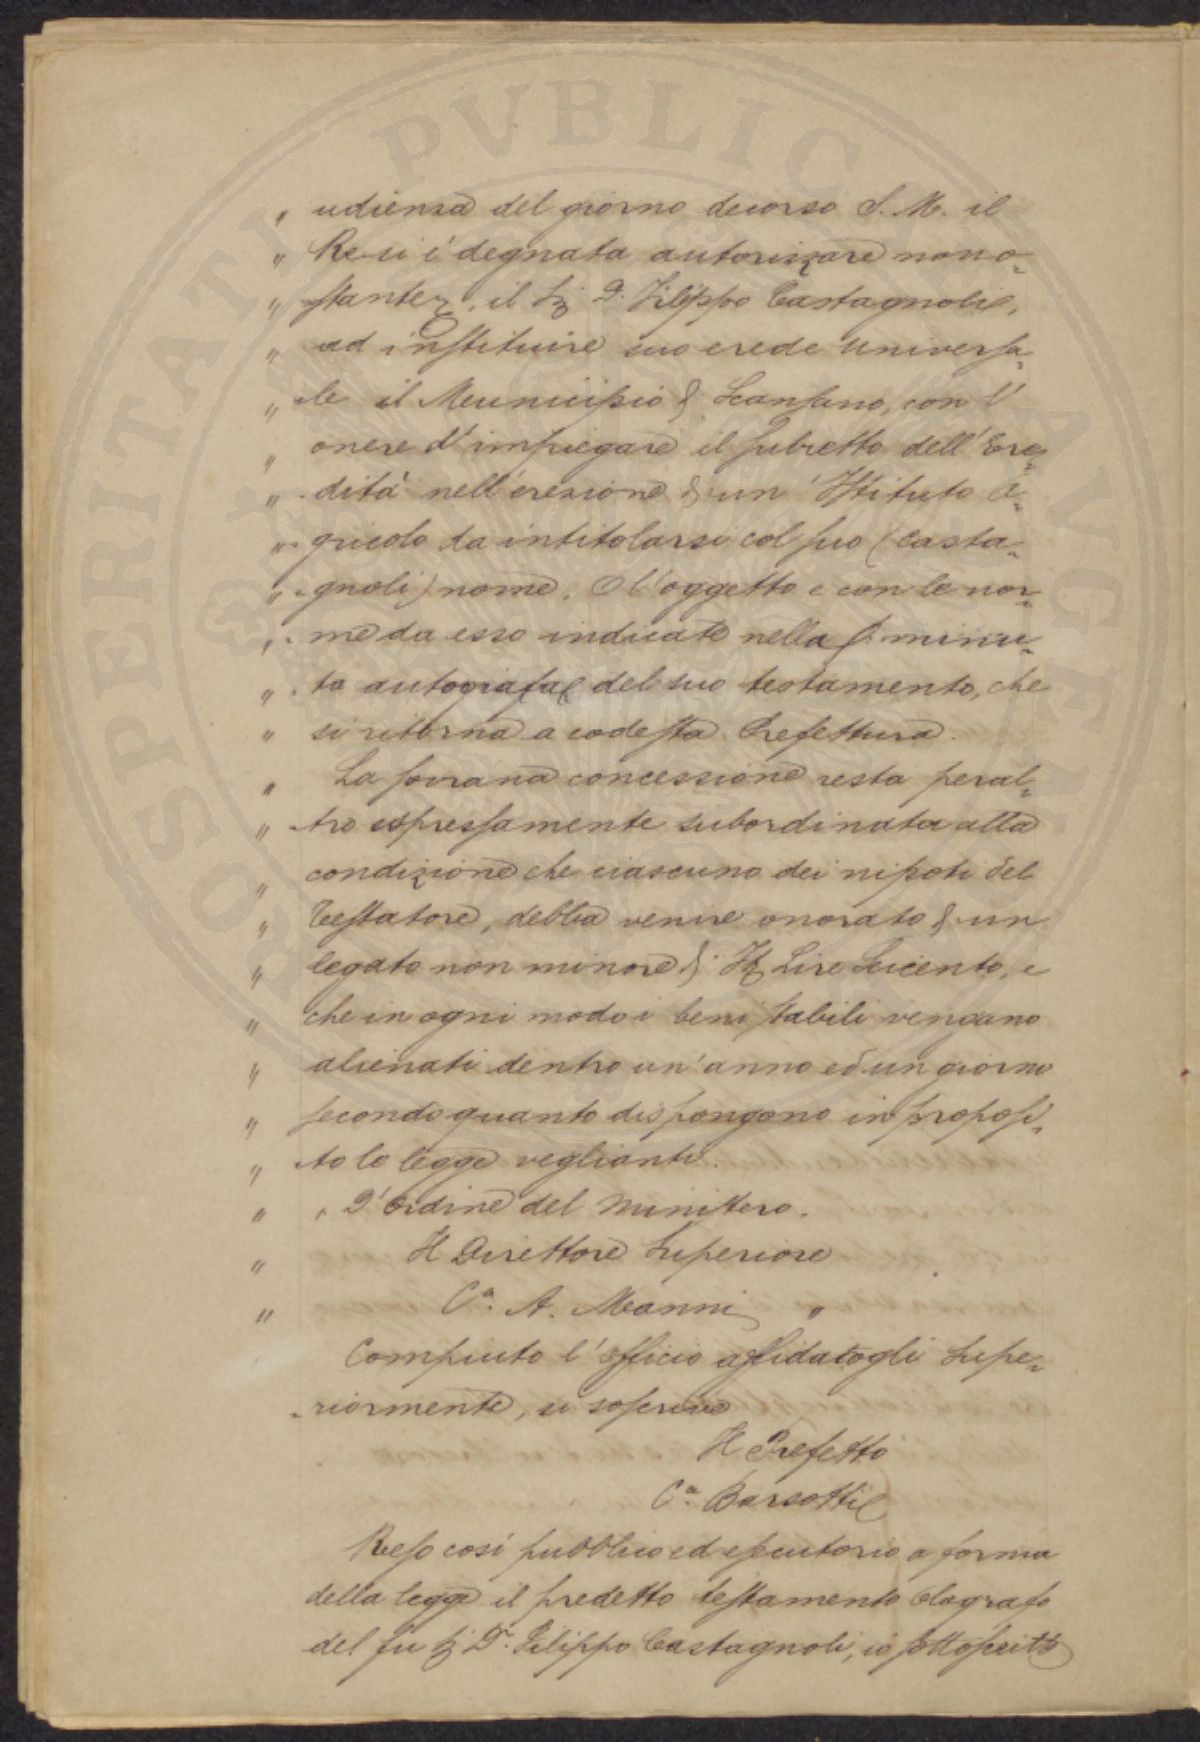 " udienza del giorno decorso S. M. il
" Re si é degnata autorizzare nono-
" stante, il Sig. D. Filippo Castagnoli,
" ad instituire suo erede universa-
" le il Municipio di Scansano, con l'
" onere d'impiegare il subietto dell'Ere-
" dità nell'erezione di un Istituto A-
" gricolo da intitolarsi col suo (Casta-
" gnoli) nome, e l'oggetto e con le nor-
" me da esso indicate nella minu-
" ta autografa del suo testamento, che
" si ritorna a codesta Prefettura.
" La sovrana concessione resta peral-
" tro espressamente subordinata alla
" condizione che ciascuno dei nipoti del
" Testatore, debba venire onorato di un
" legato non minore di It. Lire Seicento, e
" che in ogni modo i beni stabili vengano
" alienati dentro un'anno ed un giorno
" secondo quanto dispongono in proposi-
" to le legge veglianti.
" " D'ordine del Ministero.
" Il Direttore Superiore
" C.a A. Manni "
Compiuto l'officio affidatogli Supe-
riormente, si soscrive
Il Prefetto
C.a Barsotti
Reso così pubblico ed esecutorio a forma
della legge il predetto testamento Olografo
del fu Sig. D.r Filippo Castagnoli, io sottoscritto
PROSPERITATI PVBLICAE AVGENDAE